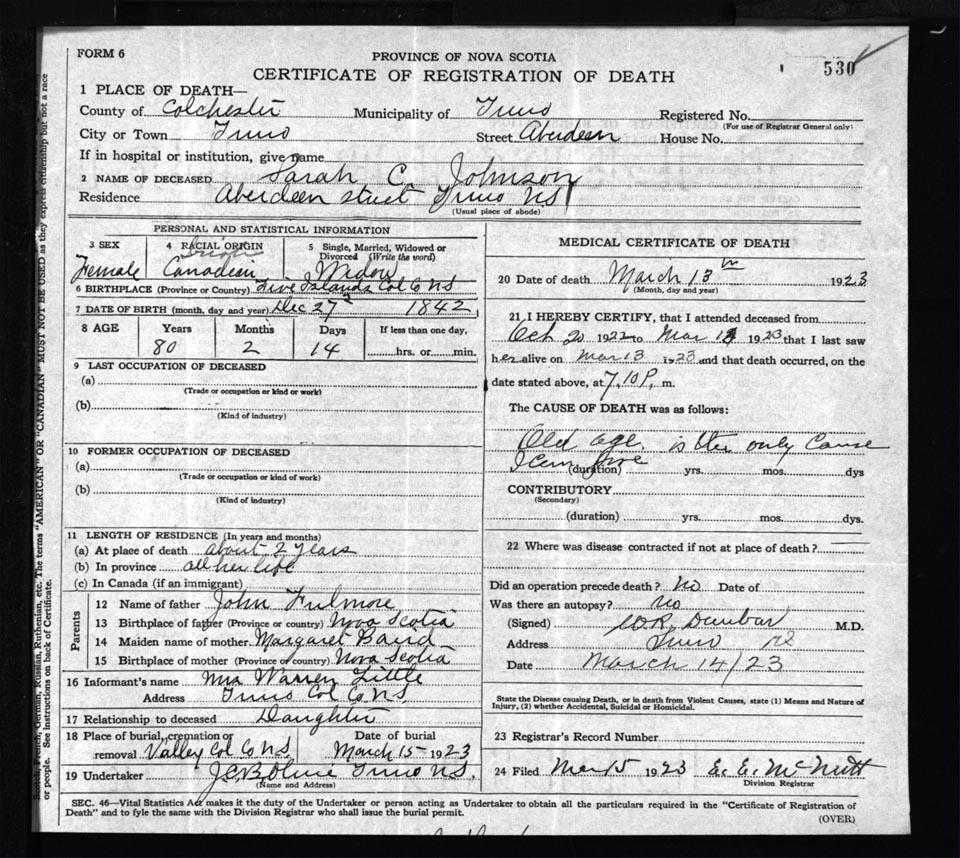 FORM 6
PROVINCE OF NOVA SCOTIA
530
CERTIFICATE OF REGISTRATION OF DEATH
1 PLACE OF DEATH—
County of Colchester Municipality of Truro Registered No.
(For use of Registrar General only)
City or Town Truro Street Aberdeen House No.
If in hospital or institution, give name
2 NAME OF DECEASED Sarah C. Johnson
Residence Aberdeen street Truro N.S.
(Usual place of abode)
PERSONAL AND STATISTICAL INFORMATION
3 SEX 4 RACIAL ORIGIN 5 Single, Married, Widowed or Divorced (Write the word)
Female Canadian Widow
6 BIRTHPLACE (Province or Country) Five Islands Col Co NS
7 DATE OF BIRTH (month, day, and year) Dec 27 1842
8 AGE Years Months Days If less than one day,
80 2 14 hrs. or min.
9 LAST OCCUPATION OF DECEASED
(a)
(Trade or occupation or kind or work)
(b)
(Kind of industry)
10 FORMER OCCUPATION OF DECEASED
(a)
(Trade or occupation or kind of work)
(b)
(Kind of industry)
11 LENGTH OF RESIDENCE (In years and months)
(a) At place of death about 2 years
(b) In province all her life
(c) In Canada (if an immigrant)
Parents
12 Name of father John Fulmore
13 Birthplace of father (Province or country) Nova Scotia
14 Maiden name of mother Margaret Baird
15 Birthplace of mother (Province or country) Nova Scotia
16 Informant's name Mrs Warren Little
Address Truro Col Co NS
17 Relationship to deceased Daughter
18 Place of burial, cremation or removal Valley Col Co N.S. Date of burial March 15 1923
19 Undertaker Truro N.S.
(Name and Address)
MEDICAL CERTIFICATE OF DEATH
20 Date of death March 13th 1923
(Month, day and year)
21 I HEREBY CERTIFY, that I attended deceased from
Oct 20 1922 to Mar 13 1923 that I last saw
her alive on Mar 13 1923 and that death occurred, on the
date stated above, at 7.10 P. m.
The CAUSE OF DEATH was as follows:
Old age is the only Cause
I can give
(duration) yrs. mos. dys
CONTRIBUTORY
(Secondary)
(duration) yrs. mos. dys.
22 Where was disease contracted if not at place of death?
Did an operation precede death? no Date of
Was there an autopsy? no
(Signed) Dunbar M.D.
Address Truro NS
Date March 14/23
State the Disease causing Death, or in death from Violent Causes, state (1) Means and Nature of
Injury, (2) whether Accidental, Suicidal or Homicidal.
23 Registrar's Record Number
24 Filed Mar 15 1923 E. E. McNutt
Division Registrar
SEC. 46—Vital Statistics Act makes it the duty of the Undertaker or person acting as Undertaker to obtain all the particulars required in the "Certificate of Registration of
Death" and to fyle the same with the Division Registrar who shall issue the burial permit.
(OVER)
French, German, Russian, Ruthenian, etc. The terms "AMERICAN" OR "CANADIAN" MUST NOT BE USED as they express citizenship but not a race
or people. See instructions on back of Certificate.